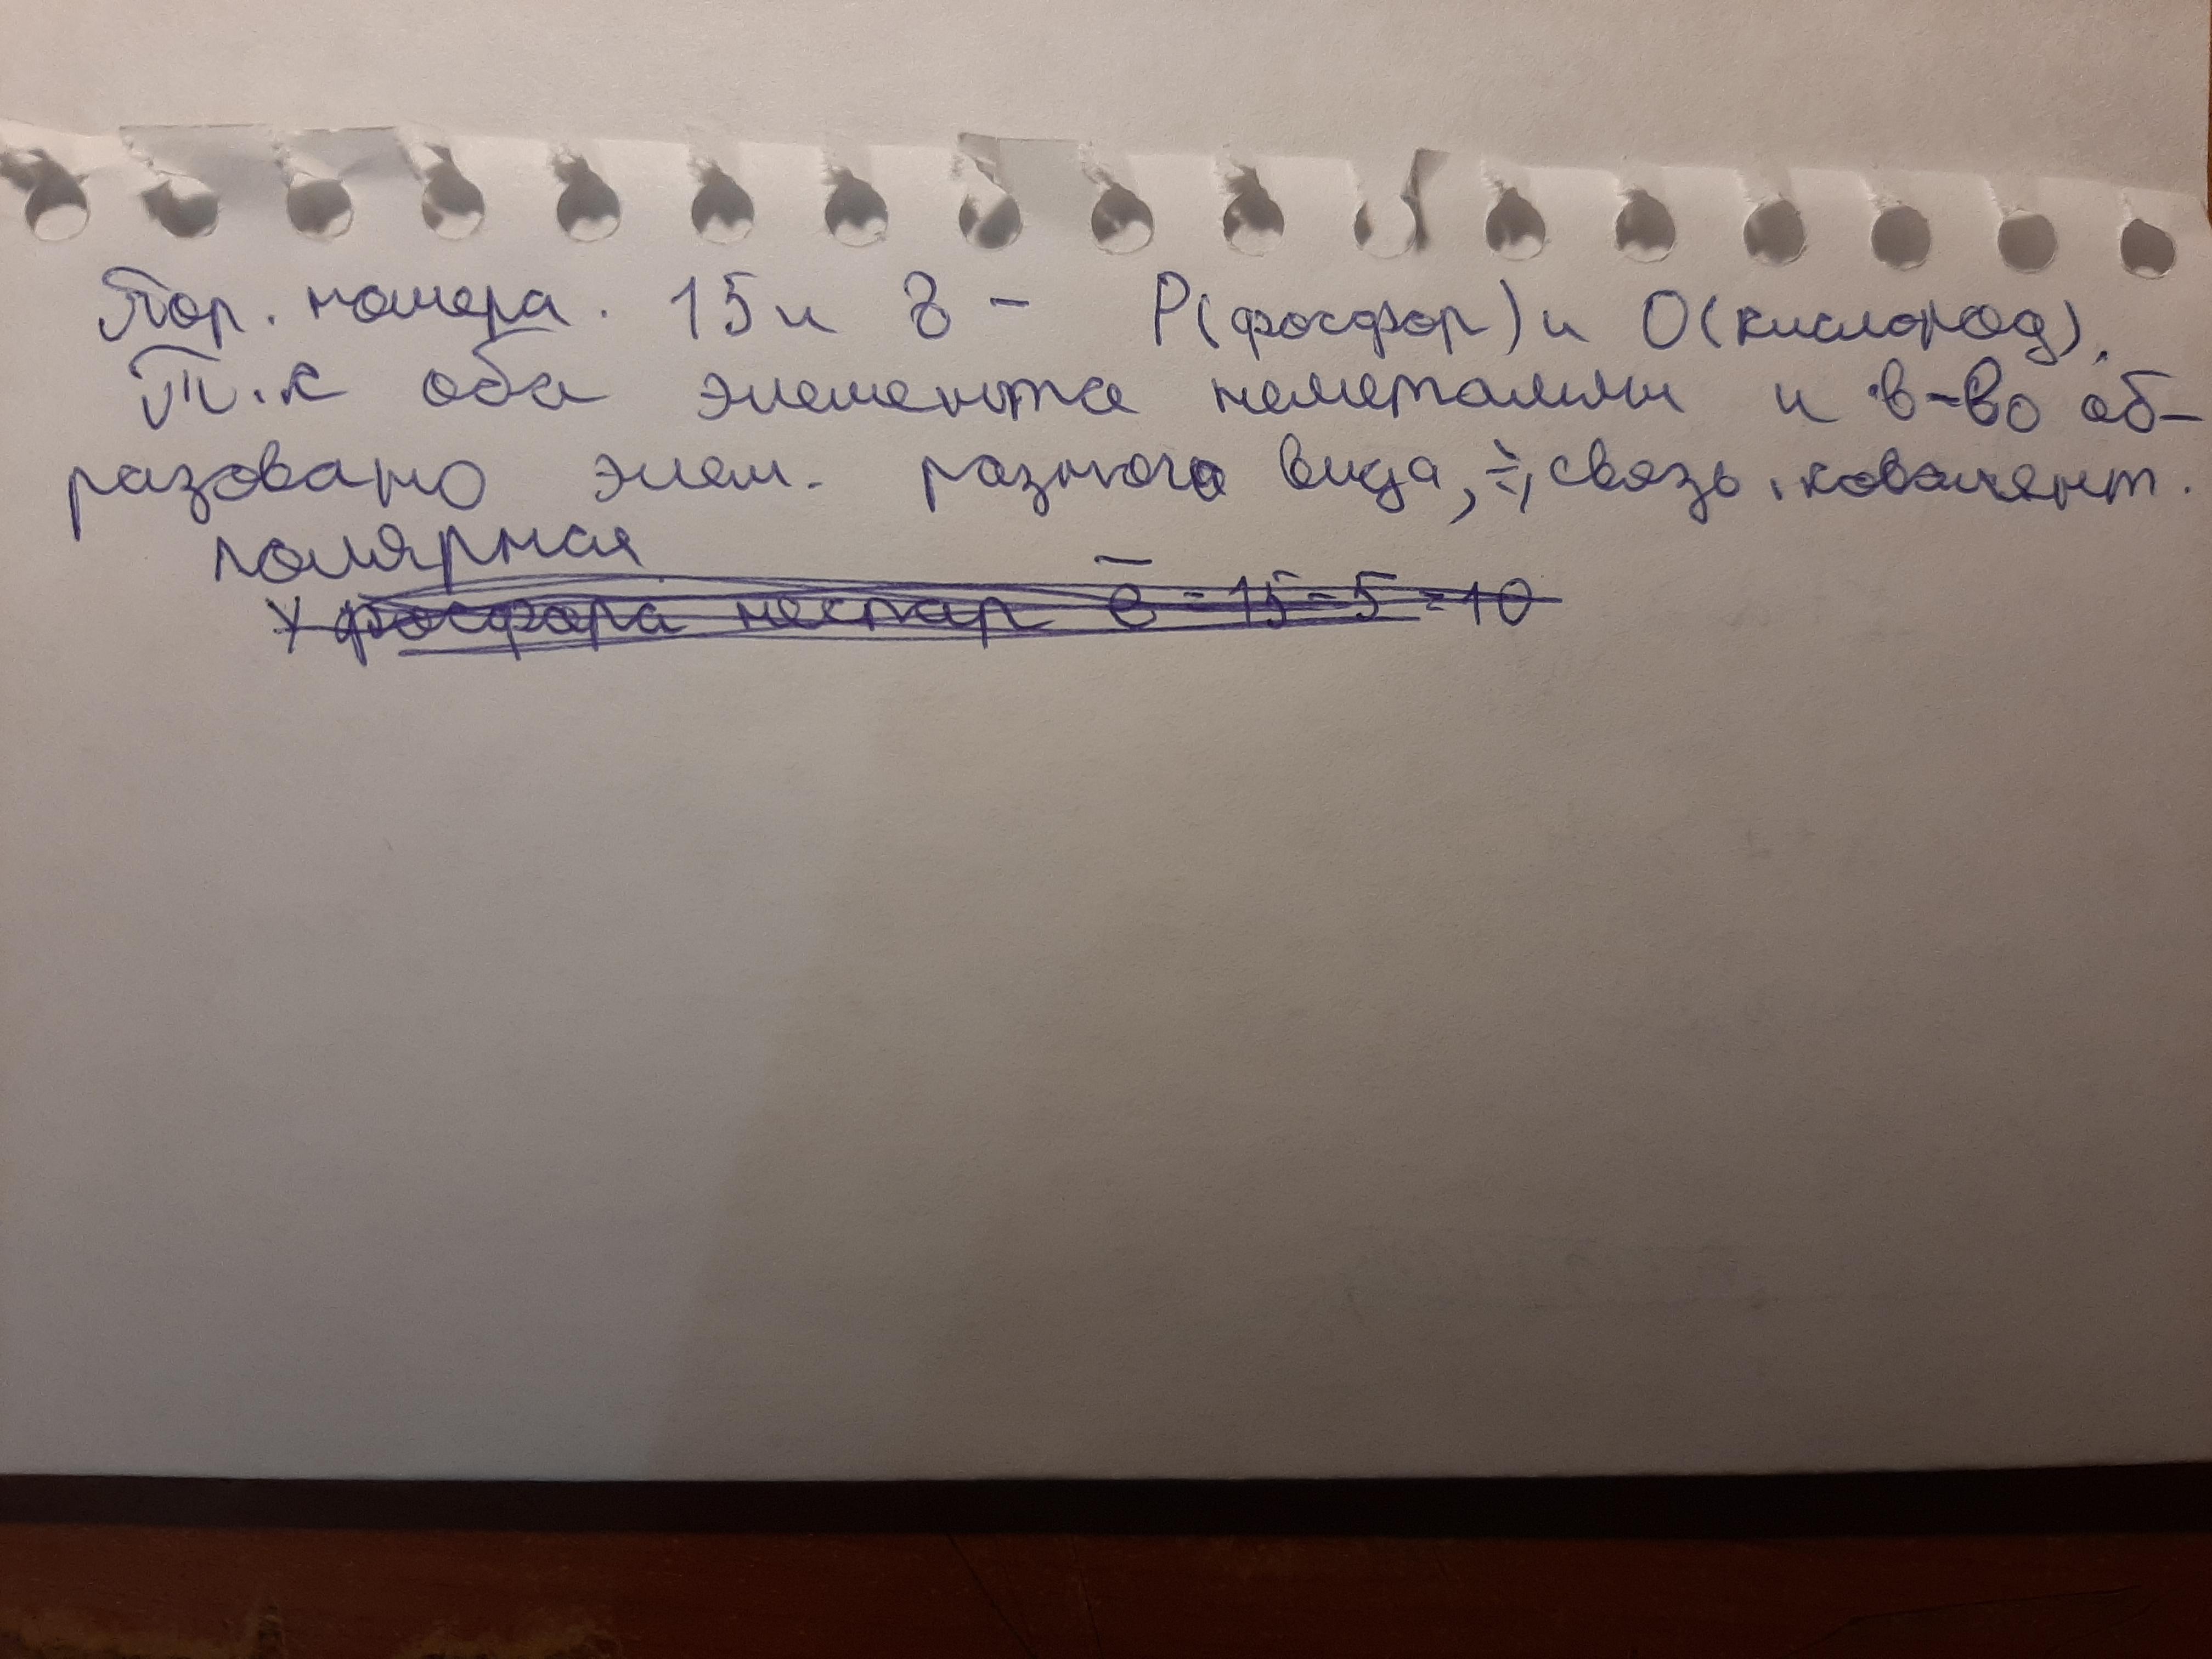 Пор. номера. 15 и 8 - P(фосфор) и O(кислород).
Т.к оба элемента неметаллы и в-во об-
разовано элем. разного вида, ⇒, связь ковалент.
полярная
У фосфора неспар ē = 15 - 5 = 10